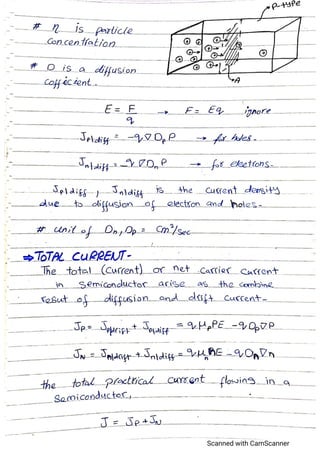 P-type
# η is particle
Concentration
# D is a diffusion
Cofficient.
A
E = F/q → F = Eq ignore
Jp|diff = -q∇DpP → for holes.
Jn|diff = -q∇DnP → for electrons.
Jp|diff, Jn|diff is the current density
due to diffusion of electron and holes.
# unit of Dn, Dp = cm²/sec
⇒ TOTAL CURRENT-
The total (current) or net carrier current
in Semiconductor arise as the combine
result of diffusion and drift current-
Jp = Jp|drift + Jp|diff = qμpPE - qDp∇P
JN = Jn|drift + Jn|diff = qμnnE - qDn∇n
the total practical current flowing in a
Semiconductor,
J = Jp + JN
Scanned with CamScanner